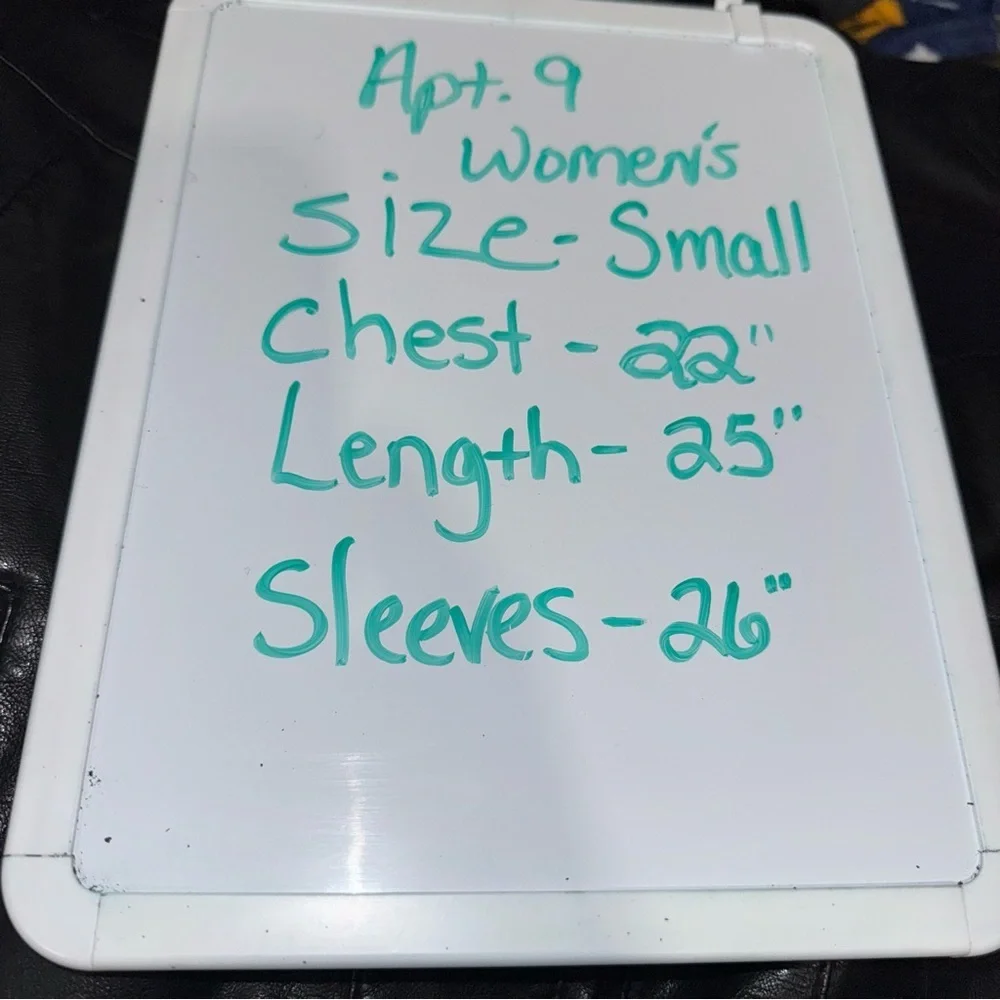 Apt. 9
Women's
Size - Small
Chest - 22"
Length - 25"
Sleeves - 26"